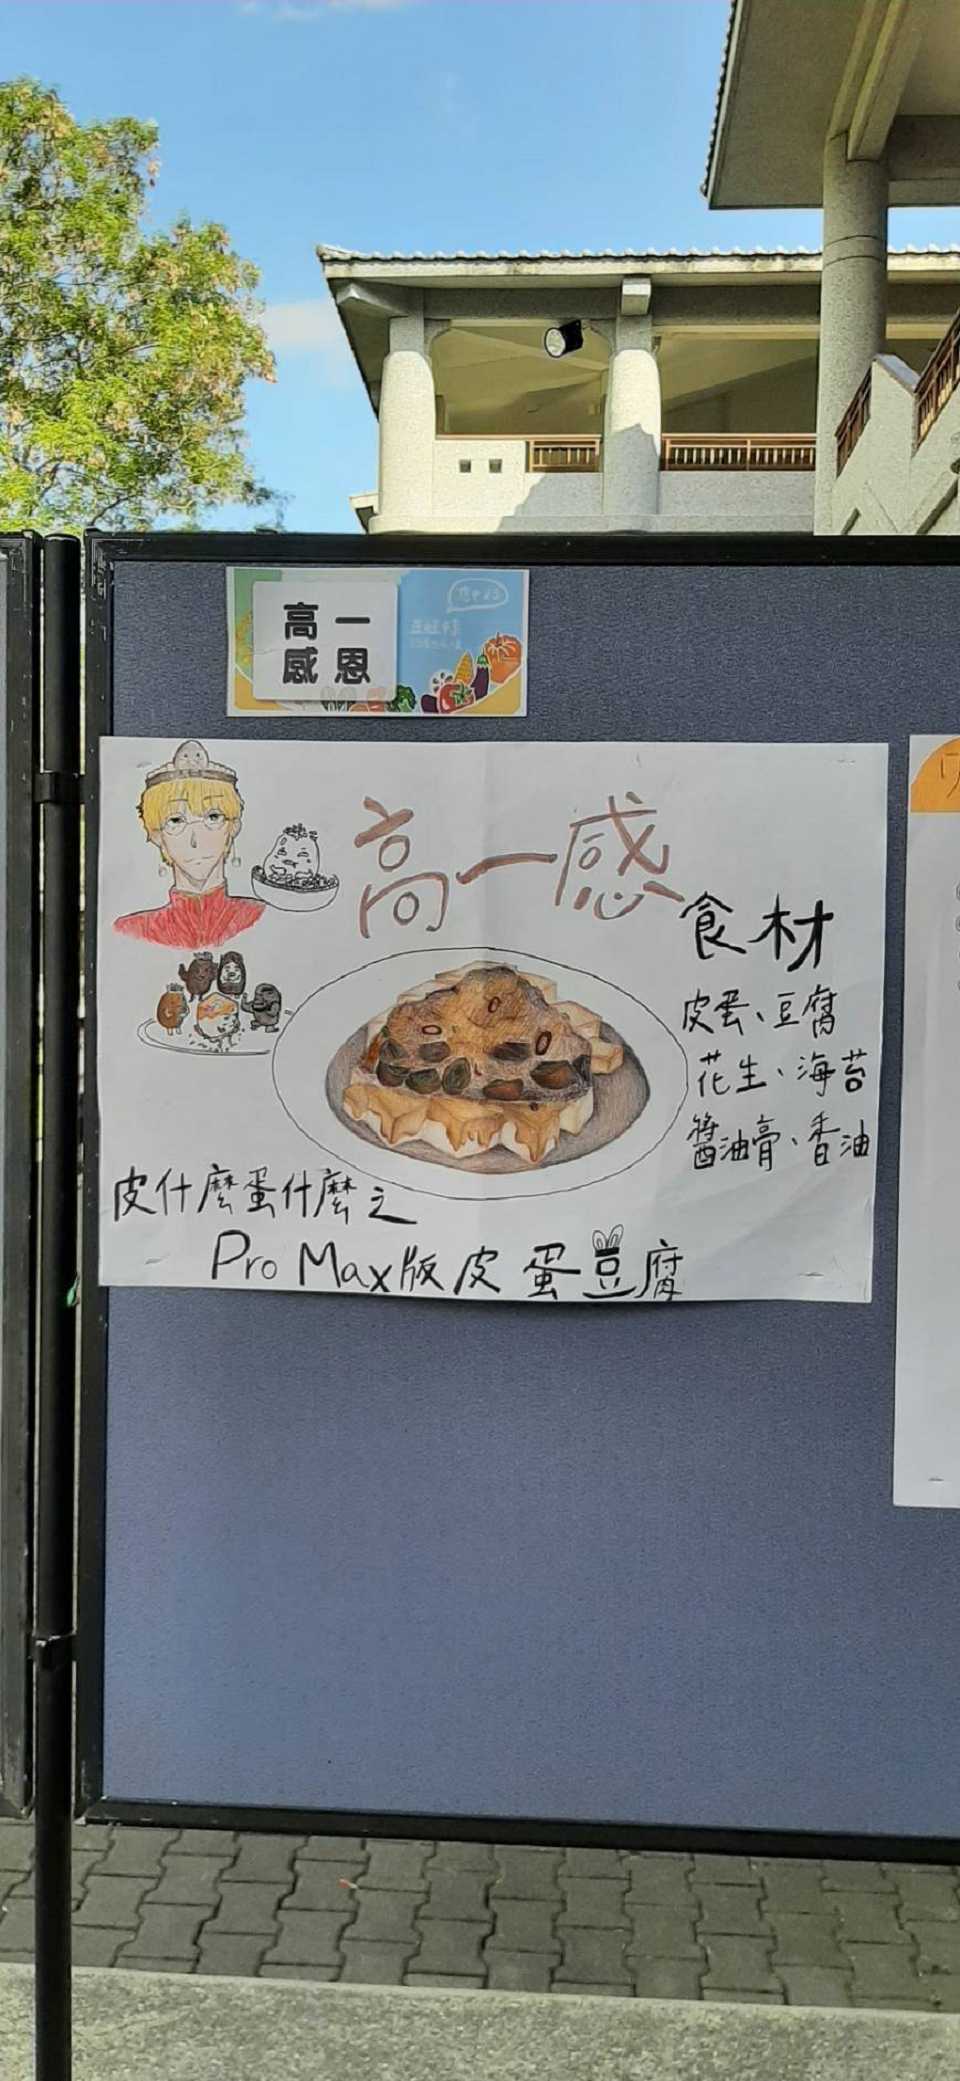 高一
感恩
高一感
食材
皮蛋、豆腐
花生、海苔
醬油膏、香油
皮什麼蛋什麼之
Pro Max版皮蛋豆腐